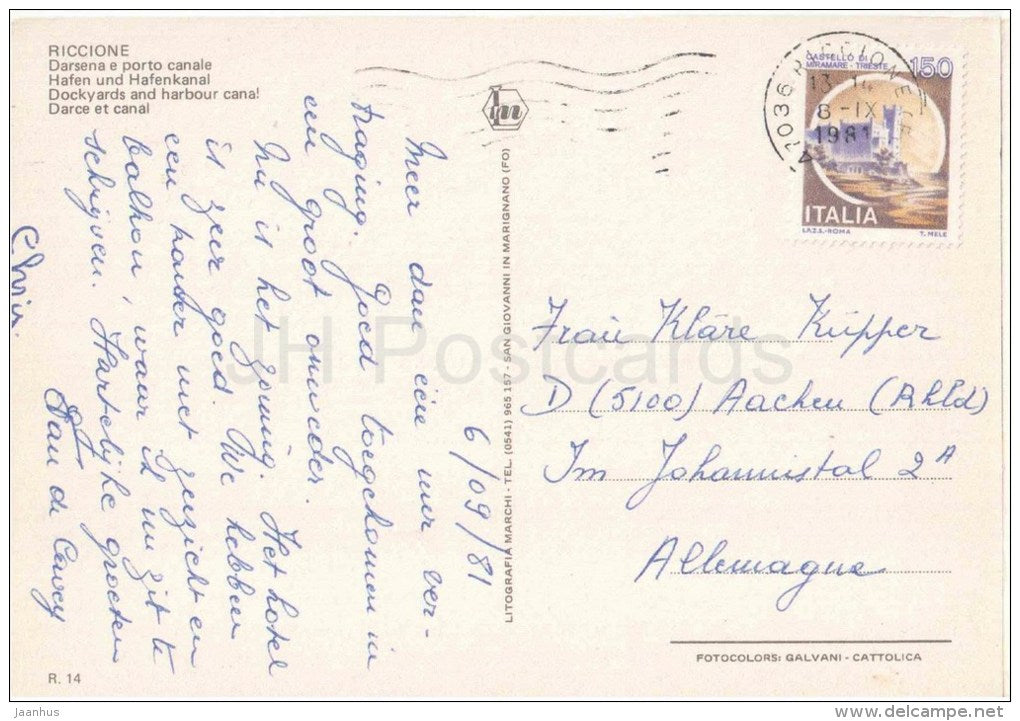 RICCIONE
Darsena e porto canale
Hafen und Hafenkanal
Dockyards and harbour canal
Darce et canal
6/09/81
Meer dan één uur ver-
traging. Goed toegekomen in
een groot onweder.
Nu is het zonnig. Het hotel
is zeer goed. We hebben
een kamer met gezicht en
balkon, waar ik nu zit te
schrijven. Hartelijke groeten
LITOGRAFIA MARCHI - TEL. (0541) 965 157 - SAN GIOVANNI IN MARIGNANO (FO)
47036 RICCIONE
13-14
8-IX
1981
CASTELLO DI
MIRAMARE - TRIESTE
150
ITALIA
I.P.Z.S.-ROMA
T. MELE
Frau Kläre Küpper
D (5100) Aachen (Rhld)
Im Johannistal 2A
Allemagne
FOTOCOLORS: GALVANI - CATTOLICA
R. 14
JH Postcards
jaanhus
www.delcampe.net